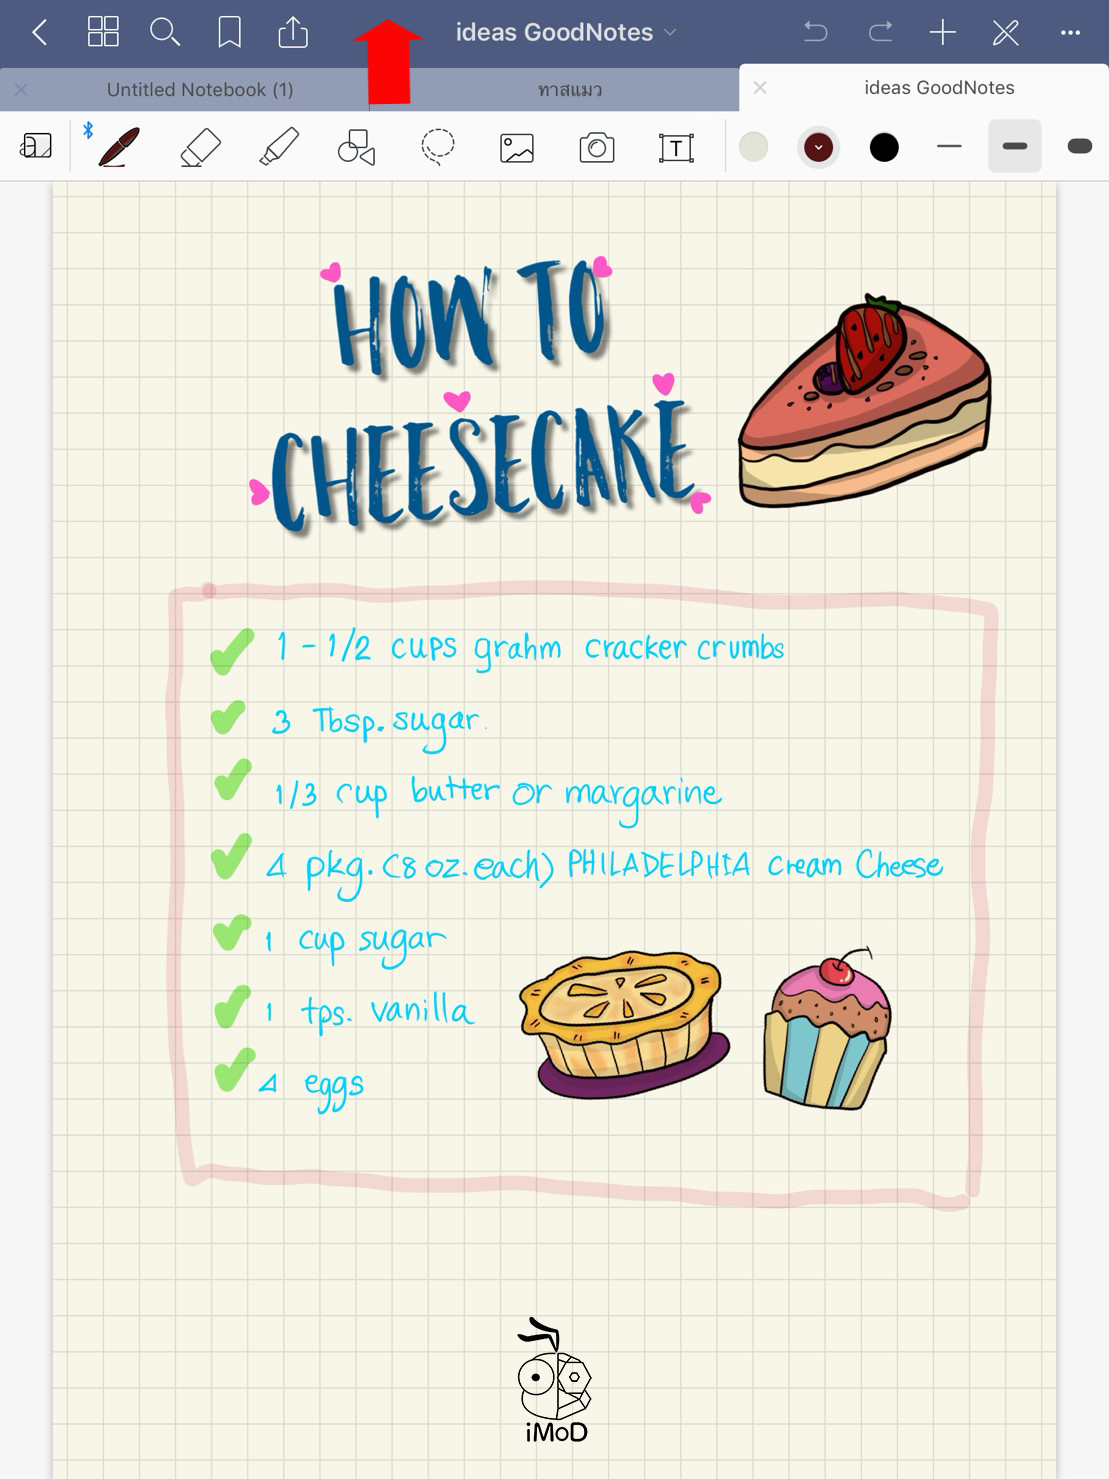 ideas GoodNotes
Untitled Notebook (1)
ทาสแมว
ideas GoodNotes
T
HOW TO
CHEESECAKE
1 - 1/2 cups grahm cracker crumbs
3 Tbsp. sugar.
1/3 cup butter or margarine
4 pkg. (8 oz. each) PHILADELPHIA cream Cheese
1 cup sugar
1 tps. vanilla
4 eggs
iMoD